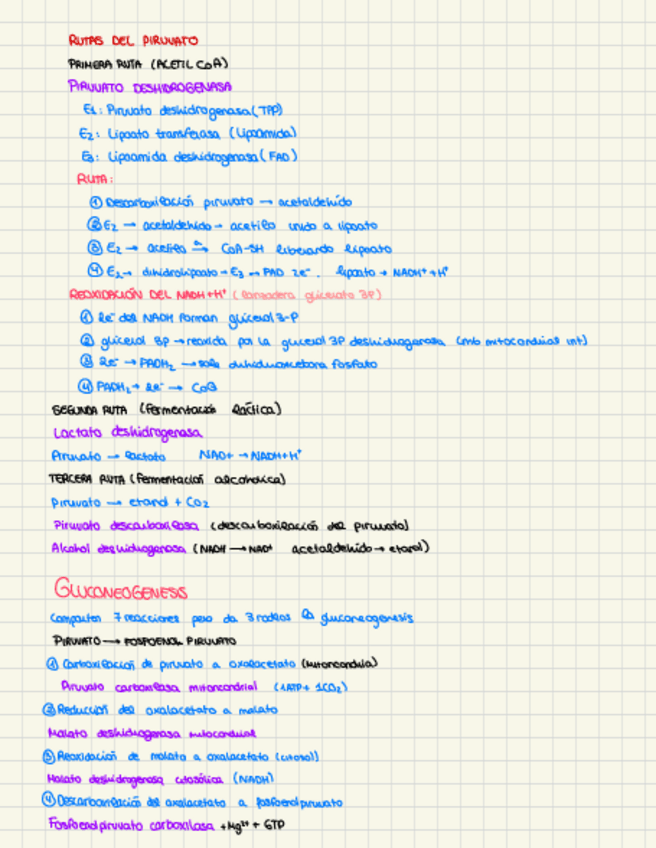 RUTAS DEL PIRUVATO
PRIMERA RUTA (ACETIL CoA)
PIRUVATO DESHIDROGENASA
E1: Piruvato deshidrogenasa (TPP)
E2: Lipoato transferasa (Lipoamida)
E3: Lipoamida deshidrogenasa (FAD)
RUTA:
① Descarboxilación piruvato → acetaldehído
② E2 → acetaldehído → acetilo unido a lipoato
③ E2 → acetilo → CoA-SH liberando lipoato
④ E2 → dihidrolipoato → E3 → FAD 2e⁻. lipoato → NADH⁺ + H⁺
REOXIDACIÓN DEL NADH+H⁺ (lanzadera glicerato 3P)
① 2e⁻ del NADH forman glicerol 3-P
② glicerol 3P → reoxida por la glicerol 3P deshidrogenasa (mb mitocondrial int)
③ 2e⁻ → FADH₂ → sale dihidroxiacetona fosfato
④ FADH₂ → 2e⁻ → CoQ
SEGUNDA RUTA (Fermentación láctica)
Lactato deshidrogenasa
Piruvato → lactato NAD+ → NADH+H⁺
TERCERA RUTA (Fermentación alcohólica)
Piruvato → etanol + CO₂
Piruvato descarboxilasa (descarboxilación del piruvato)
Alcohol deshidrogenasa (NADH → NAD⁺ acetaldehído → etanol)
GLUCONEOGENESIS
Comparten 7 reacciones pero da 3 rodeos la gluconeogenesis
PIRUVATO → FOSFOENOL PIRUVATO
① Carboxilación de piruvato a oxalacetato (mitocondria)
Piruvato carboxilasa mitocondrial (1ATP + 1CO₂)
② Reducción del oxalacetato a malato
Malato deshidrogenasa mitocondrial
③ Reoxidación de malato a oxalacetato (citosol)
Malato deshidrogenasa citosólica (NADH)
④ Descarboxilación del oxalacetato a fosfoenolpiruvato
Fosfoenolpiruvato carboxilasa + Mg²⁺ + GTP